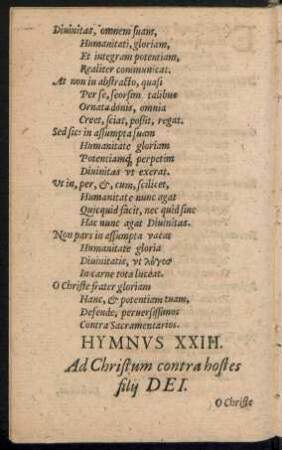 Diuinitas, omnem suam,
Humanitati, gloriam,
Et integram potentiam,
Realiter communicat.
At non in abstracto, quasi
Per se, seorsim talibus
Ornata donis, omnia
Creet, sciat, possit, regat.
Sed sic: in assumpta suam
Humanitate gloriam
Potentiamq́, perpetim
Diuinitas vt exerat.
Vt in, per, &, cum, scilicet,
Humanitate nunc agat
Quicquid facit, nec quid sine
Hac nunc agat Diuinitas.
Non pars in assumpta vacat
Humanitate gloria
Diuinitatis, vt λόγος
In carne tota luceat.
O Christe frater gloriam
Hanc, & potentiam tuam,
Defende, peruersissimos
Contra Sacramentarios.
HYMNVS XXIII.
Ad Christum contra hostes
filij DEI.
O Christe